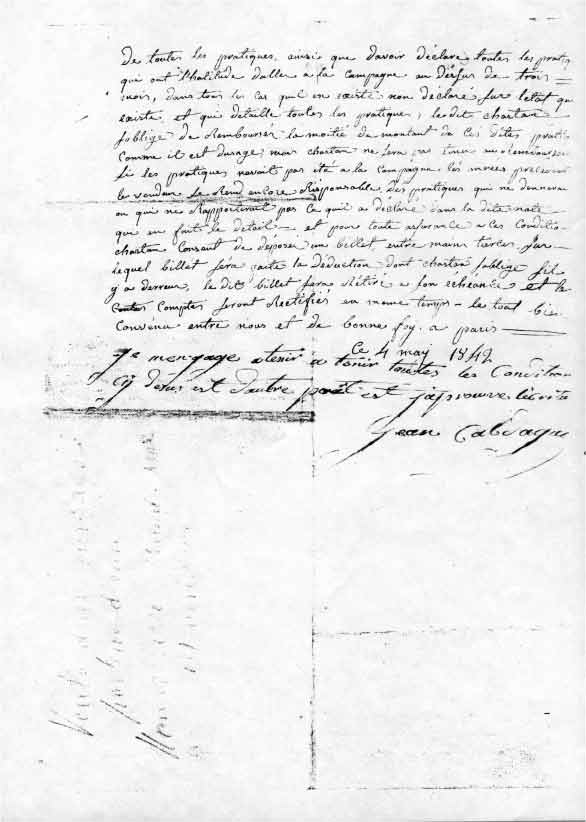 de toutes les pratiques, ainsi que davoir déclaré toutes les pratiq
que ont lhabitude daller a la campagne au désus de trois
mois, dans tous les cas quil en existe non déclaré sur letat qui
existe et qui detaille toutes les pratiques, le dit chartan
soblige de Rembourser la moitié du montant de Ces dites pratiq
Comme il est dusage, mais chartan ne sera pas tenu au
si les pratiques navait pas été a la Campagne les années precedent
le vendeur Se Rend encore Responsable, des pratiques qui ne donnerai
ou qui ne Rapporterait pas Ce quil a déclaré dans la dite note
que en fait le detail — et pour toute assurance a les Conditio
chartan Consent de déposer un billet entre mains tierces, sur
lequel billet sera faite la déduction dont chartan soblige sil
y a derreur, le dit billet sera Rétiré a son échéance et le
Comptes seront Rectifiés en meme temps — le tout bie
Convenu entre nous et de bonne foy. a paris
Ce 4 may 1842
Je mengage a tenir toutes les Condition
Cy desus est dautre part est japrouve lécritu
Jean Caldaque